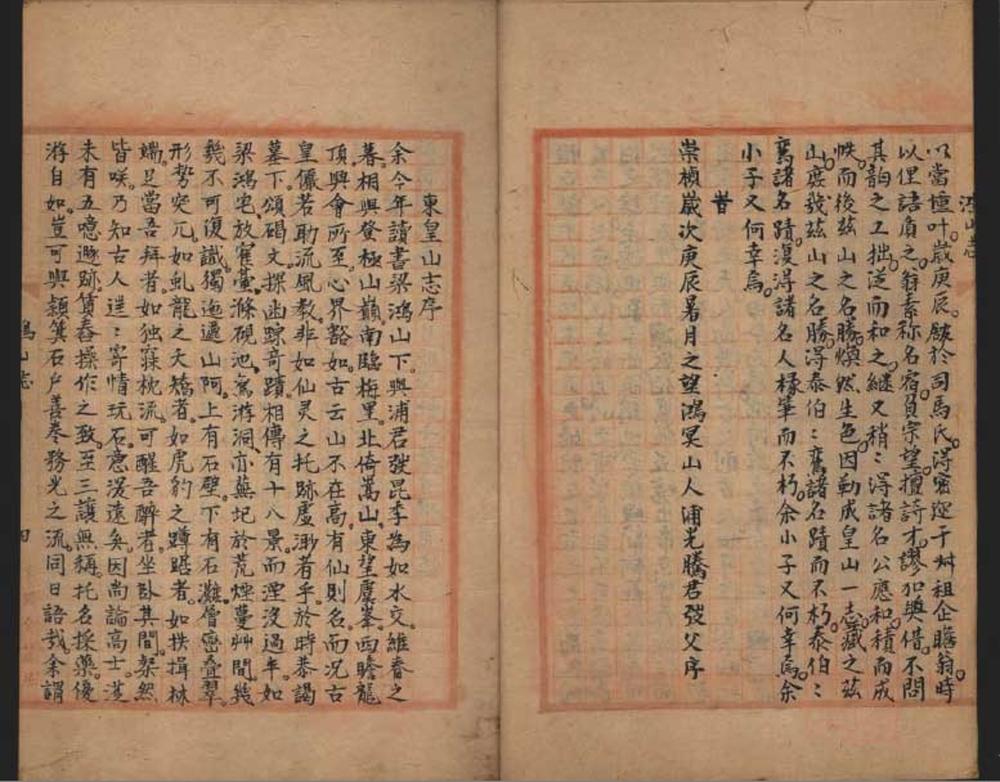 鴻山志
以當壇叶歲庚辰館於司馬氏得密邇千村祖企瞻翁時
以俚語質之翁素称名宿負宗望擅詩才謬加奬借不問
其詞之工拙逆而和之継又稍〻得諸名公應和積而成
帙而後茲山之名勝煥然生色因勒成皇山一志藏之茲
山庶幾茲山之名勝得泰伯〻鸞諸名蹟而不朽泰伯〻
鸞諸名蹟復得諸名人椽筆而不朽余小子又何幸焉余
小子又何幸焉
旹
崇禎歲次庚辰暑月之望鴻冥山人浦光騰君發父序
東皇山志序
余今年讀書梁鴻山下與浦君發昆季為如水交維春之
暮相與登極山巔南臨梅里北倚嵩山東望虞峯西瞻龍
頂興會所至心界豁如古云山不在高有仙則名而况古
皇儷若助流風教非如仙灵之托跡虛渺者乎於時恭謁
墓下頌碣文探幽踪奇蹟相傳有十八景而湮沒過半如
梁鴻宅放鶴臺滌硯池鴛游洞亦蕪圮於荒煙蔓艸間幾
幾不可復識獨迤邐山阿上有石壁下有石灘層巒疊翠
形勢突兀如虬龍之夭矯者如虎豹之蹲踞者如拱揖林
端足當吾拜者如独寐枕流可醒吾醉者坐卧其間粲然
皆咲乃知古人迋〻寄情玩石意漫遠矣因尚論高士漢
未有五噫遯跡賃舂操作之致至三讓無稱托名採藥優
游自如豈可與潁箕石户善卷務光之流同日語哉余謂
鴻山志
四